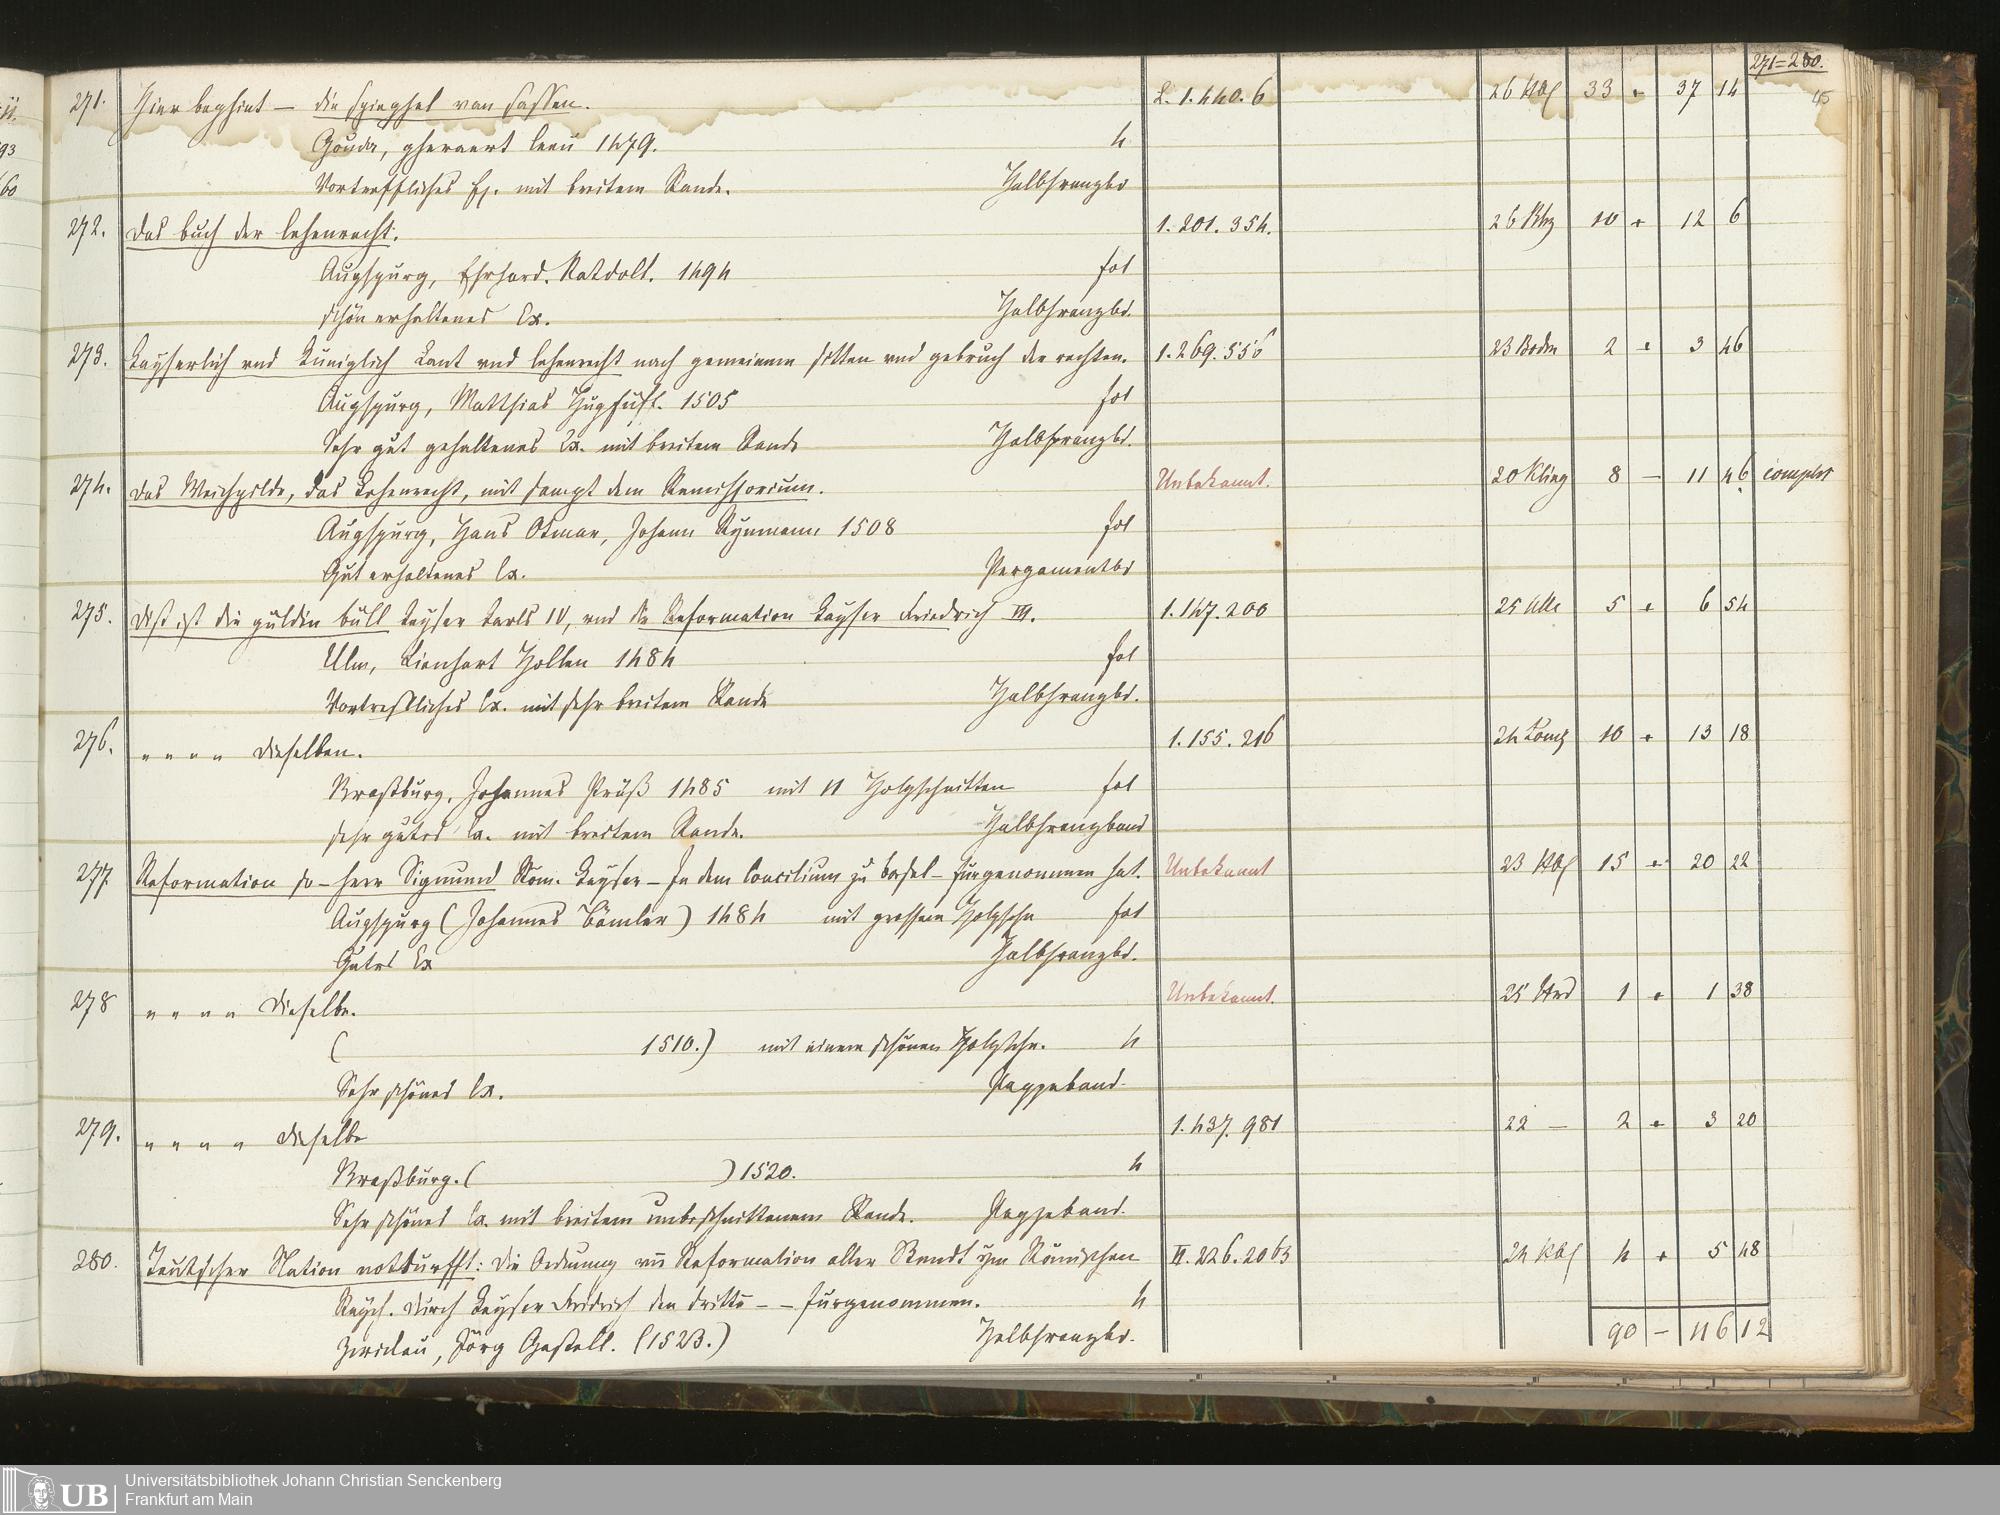 271=280.
45
271. Hier beghint — die spieghel van sassen. L. 1.440.6 26 33 - 37 14
Gouda, gheraert leeu 1479. 4
Vortreffliches Ex. mit breitem Rande. Halbfranzbd
272. Das buch der lehenrecht. 1.201.354. 26 10 - 12 6
Augspurg, Ehrhard. Ratdolt. 1494 fol
schön erhaltenes Ex. Halbfranzbd.
273. Kayserlich vnd Kuniglich Lant vnd lehenrecht nach gemeinem sitten vnd gebruch der rechten. 1.269.556 23 2 - 3 46
Augspurg, Matthias Hugfüst. 1505 fol
Sehr gut gehaltenes Ex. mit breitem Rande Halbfranzbd.
274. Das Weichpilde, das Lehenrecht, mit sampt dem Remissorium. Unbekannt. 20 Kling 8 — 11 46 complet
Augspurg, Hans Otmar, Johann Rynmann 1508 fol
Gut erhaltenes Ex. Pergamentbd
275. Dist ist die güldin büll Keyser Karls IV, vnd die Reformation Kayser Friedrich III. 1.147.200 25 5 - 6 54
Ulm, Lienhart Hollen 1484 fol
Vortreffliches Ex. mit sehr breitem Rande Halbfranzbd.
276. " " " " Dieselben. 1.155.216 24 10 - 13 18
Straßburg, Johannes Prüß 1485 mit 11 Holzschnitten fol
sehr gutes Ex. mit breitem Rande. Halbfranzband
277 Reformation so — herr Sigmund Röm. Keyser — In dem Concilium zu basel — fürgenommen hat. Unbekannt 23 15 - 20 22
Augspurg (Johannes Bämler) 1484 mit grossem Holzschn fol
Gutes Ex Halbfranzbd.
278 " " " " Dieselbe. Unbekannt. 25 1 - 1 38
( 1510.) mit einem schönen Holzschn. 4
Sehr schönes Ex. Pappeband.
279. " " " " Dieselbe 1.437.981 22 — 2 - 3 20
Straßburg. ( ) 1520. 4
Sehr schönes Ex. mit breitem unbeschnittenem Rande. Pappeband.
280. Teutscher Nation notdurfft: Die Ordnung vn Reformation aller Stendt ym Römischen II.226.2063 24 4 - 5 48
Reych. Durch Keyser Fridrich den dritte — — fürgenommen. 4
Zwickau, Jörg Gastell. (1523.) Halbfranzbd.
90 — 116 12
93
60
UB Universitätsbibliothek Johann Christian Senckenberg
Frankfurt am Main